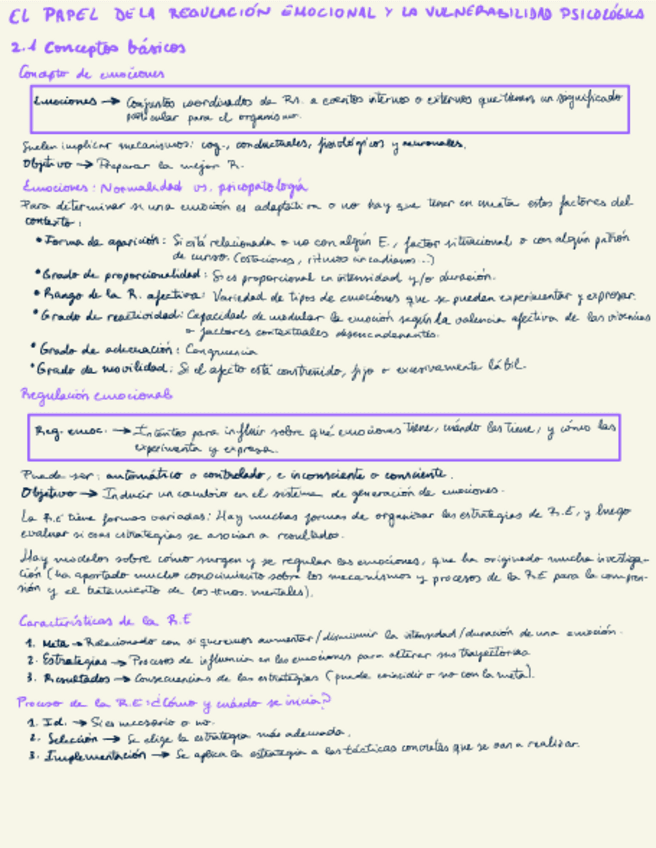 EL PAPEL DE LA REGULACIÓN EMOCIONAL Y LA VULNERABILIDAD PSICOLÓGICA
2.1 Conceptos básicos
Concepto de emociones
Emociones → Conjuntos coordinados de Rs. a eventos internos o externos que tienen un significado
particular para el organismo.
Suelen implicar mecanismos: cog., conductuales, fisiológicos y neuronales.
Objetivo → Preparar la mejor R.
Emociones: Normalidad vs. psicopatología
Para determinar si una emoción es adaptativa o no hay que tener en cuenta estos factores del
contexto:
• Forma de aparición: Si está relacionada o no con algún E., factor situacional o con algún patrón
de curso. (estaciones, ritmos circadianos...)
• Grado de proporcionalidad: Si es proporcional en intensidad y/o duración.
• Rango de la R. afectiva: Variedad de tipos de emociones que se pueden experimentar y expresar.
• Grado de reactividad: Capacidad de modular la emoción según la valencia afectiva de las vivencias
o factores contextuales desencadenantes.
• Grado de adecuación: Congruencia
• Grado de movilidad: Si el afecto está constreñido, fijo o excesivamente lábil.
Regulación emocional
Reg. emoc. → Intentos para influir sobre qué emociones tiene, cuándo las tiene, y cómo las
experimenta y expresa.
Puede ser: automático o controlado, e inconsciente o consciente.
Objetivo → Inducir un cambio en el sistema de generación de emociones.
La R.E tiene formas variadas: Hay muchas formas de organizar las estrategias de R.E, y luego
evaluar si esas estrategias se asocian a resultados.
Hay modelos sobre cómo surgen y se regulan las emociones, que ha originado mucha investiga-
ción (ha aportado mucho conocimiento sobre los mecanismos y procesos de la R.E para la compren-
sión y el tratamiento de los ttnos. mentales).
Características de la R.E
1. Meta → Relacionado con si queremos aumentar/disminuir la intensidad/duración de una emoción.
2. Estrategias → Procesos de influencia en las emociones para alterar sus trayectorias
3. Resultados → Consecuencias de las estrategias (puede coincidir o no con la meta).
Proceso de la R.E: ¿Cómo y cuándo se inicia?
1. Id. → Si es necesario o no.
2. Selección → Se elige la estrategia más adecuada.
3. Implementación → Se aplica la estrategia a las tácticas concretas que se van a realizar.